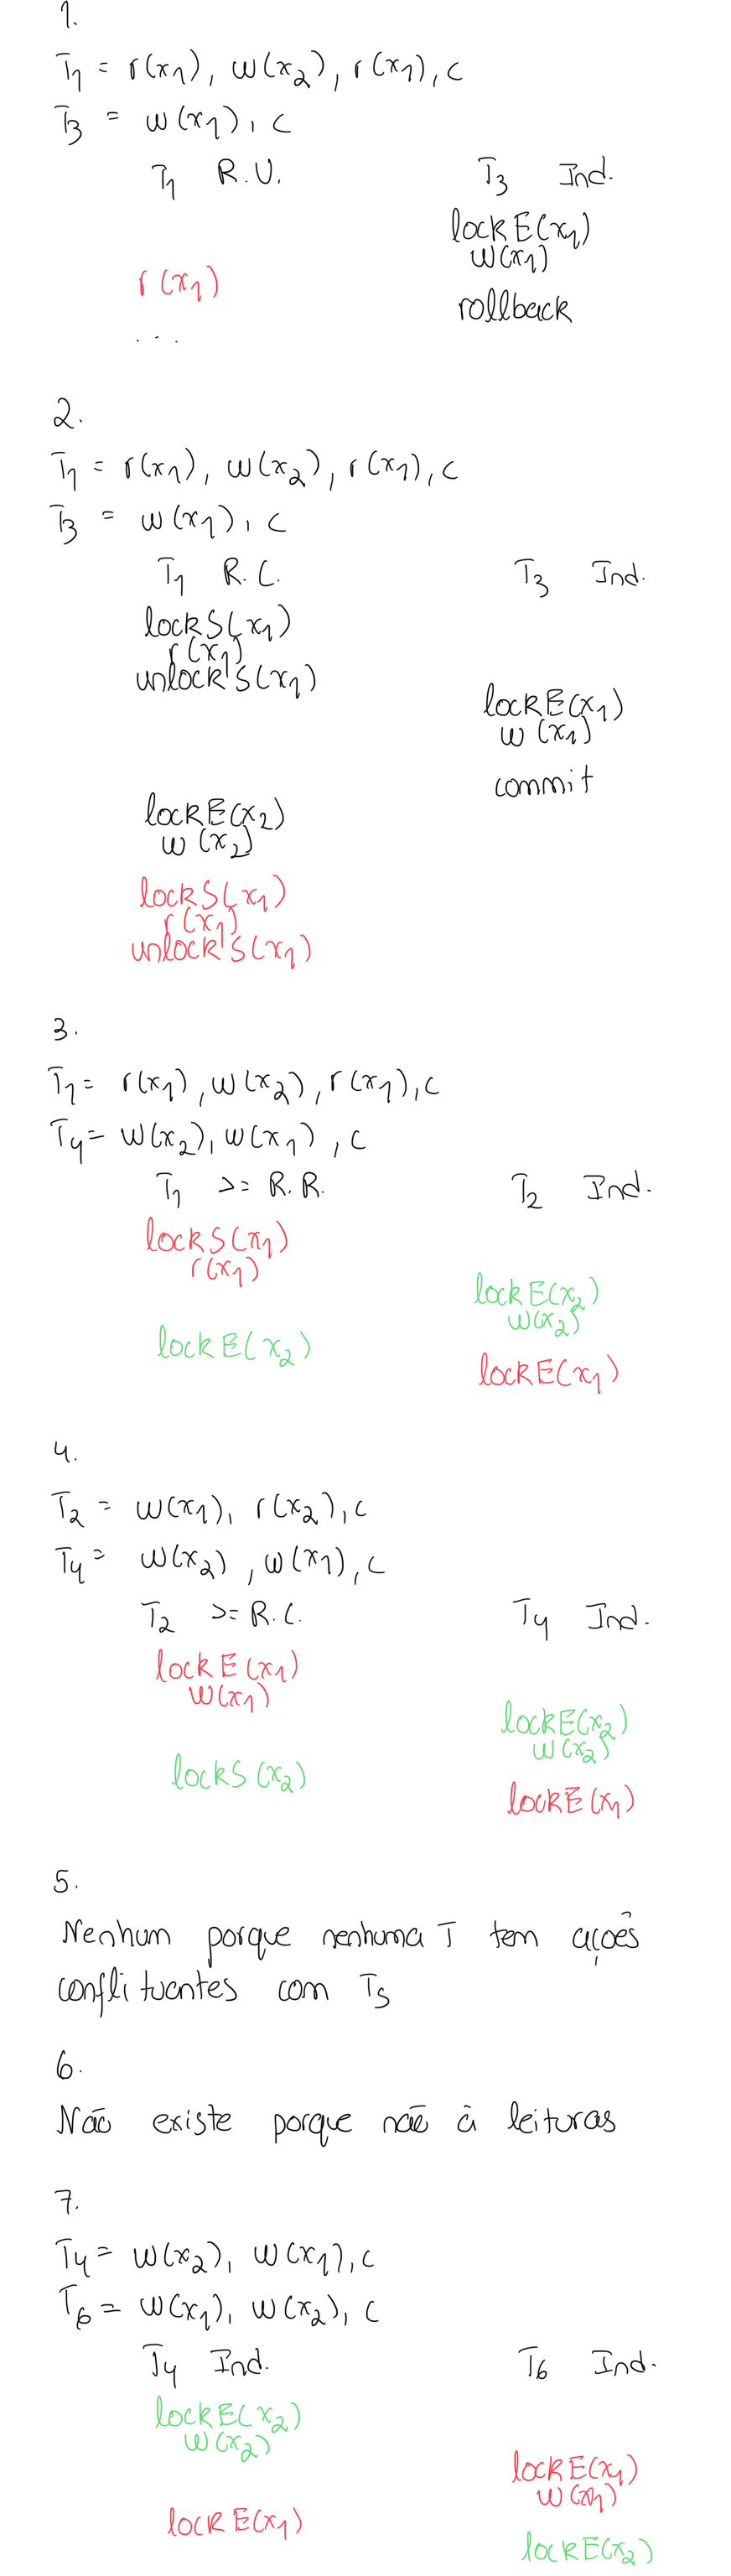 1.
T1 = r(x1), w(x2), r(x1), c
T3 = w(x1), c
T1 R.U. T3 Ind.
lockE(x1)
w(x1)
r(x1)
rollback
...
2.
T1 = r(x1), w(x2), r(x1), c
T3 = w(x1), c
T1 R.C. T3 Ind.
lockS(x1)
r(x1)
unlockS(x1)
lockE(x1)
w(x1)
commit
lockE(x2)
w(x2)
lockS(x1)
r(x1)
unlockS(x1)
3.
T1 = r(x1), w(x2), r(x1), c
T4 = w(x2), w(x1), c
T1 >= R.R. T2 Ind.
lockS(x1)
r(x1)
lockE(x2)
w(x2)
lockE(x2)
lockE(x1)
4.
T2 = w(x1), r(x2), c
T4 = w(x2), w(x1), c
T2 >= R.C. T4 Ind.
lockE(x1)
w(x1)
lockE(x2)
w(x2)
lockS(x2)
lockE(x1)
5.
Nenhum porque nenhuma T tem ações
conflituantes com T5
6.
Não existe porque não à leituras
7.
T4 = w(x2), w(x1), c
T6 = w(x1), w(x2), c
T4 Ind. T6 Ind.
lockE(x2)
w(x2)
lockE(x1)
w(x1)
lockE(x1)
lockE(x2)